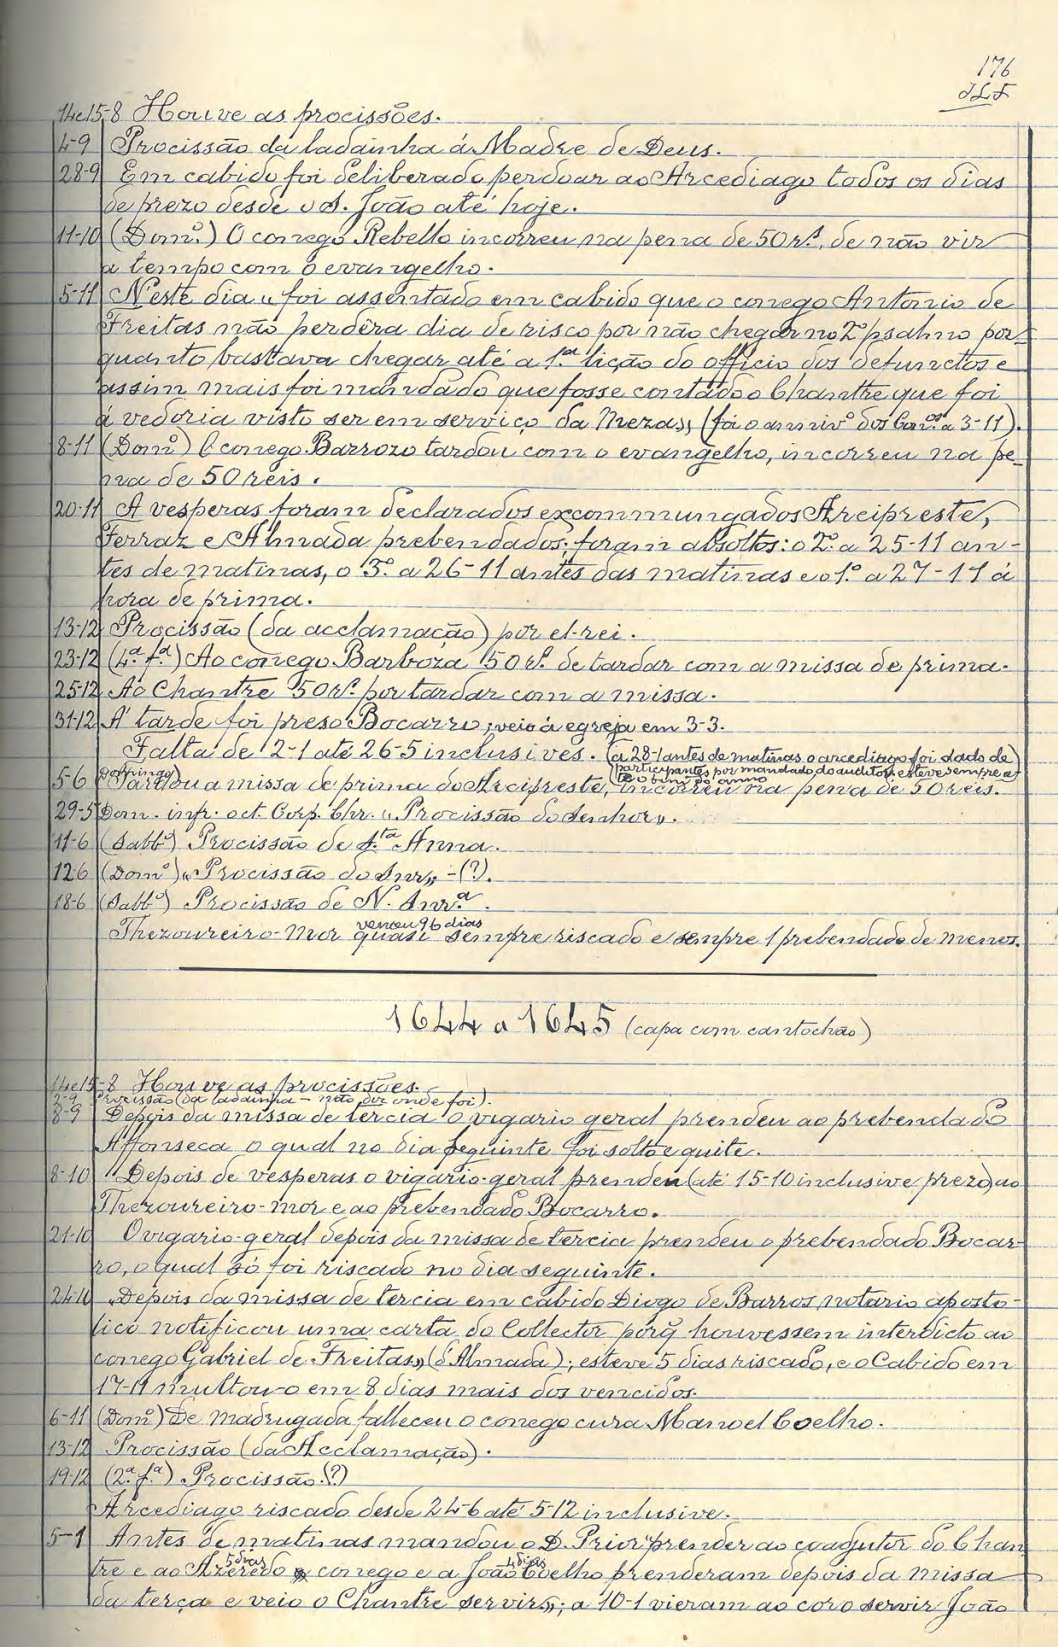 176
JLF
14e15-8 Houve as procissões.
4-9 Procissão da ladainha á Madre de Deus.
28-9 Em cabido foi deliberado perdoar ao Arcediago todos os dias
de prezo desde o S. João até hoje.
11-10 (Domº.) O conego Rebello incorreu na pena de 50 rs. de não vir
a tempo com o evangelho.
5-11 N'este dia "foi assentado em cabido que o conego Antonio de
Freitas não perdêra dia de risco por não chegar no 2º psalmo por-
quanto bastava chegar até a 1ª lição do officio dos defunctos e
assim mais foi mandado que fosse contado o Chantre que foi
á vedoria visto ser em serviço da Meza", (foi o annivº dos Con.os a 3-11).
8-11 (Domº) O conego Barrozo tardou com o evangelho, incorreu na pe-
na de 50 reis.
20-11 A vesperas foram declarados excommungados Arcipreste,
Ferraz e Almada prebendados; foram absoltos: o 2º a 25-11 an-
tes de matinas, o 3º a 26-11 antes das matinas e o 1º a 27-11 á
hora de prima.
13-12 Procissão (da acclamação) por el-rei.
23-12 (4ª fª) Ao conego Barboza 50 rs. de tardar com a missa de prima.
25-12 Ao Chantre 50 rs. por tardar com a missa.
31-12 Á tarde foi preso Bocarro; veio á egreja em 3-3.
Falta de 2-1 até 26-5 inclusives. (a 28-1 antes de matinas o arcediago foi dado de
participantes por mandado do auditor; esteve sempre a-
té o fim do anno
5-6 Domingo Tardou a missa de prima do Arcipreste, incorreu na pena de 50 reis.
29-5 Dom. infr. oct. Corp. Chr. "Procissão do Senhor".
11-6 (Sabbº) Procissão de S.ta Anna.
12-6 (Domº) "Procissão do Snr" - (?).
18-6 (Sabbº) Procissão de N. Snr.ª.
venceu 96 dias
Thezoureiro-Mor quasi sempre riscado e sempre 1 prebendado de menos.
1644 a 1645 (capa com cantochão)
14e15-8 Houve as procissões.
2-9 Procissão (da ladainha - não diz onde foi).
8-9 Depois da missa de tercia o vigario geral prendeu ao prebendado
Affonseca o qual no dia seguinte foi solto e quite.
8-10 "Depois de vesperas o vigario-geral prendeu (até 15-10 inclusive prezo) ao
Thezoureiro-mor e ao prebendado Bocarro.
21-10 O vigario-geral depois da missa de tercia prendeu o prebendado Bocar-
ro, o qual só foi riscado no dia seguinte.
24-10 "Depois da missa de tercia em cabido Diogo de Barros notario aposto-
lico notificou uma carta do Collector porq̃ houvessem interdicto ao
conego Gabriel de Freitas" (d'Almada); esteve 5 dias riscado, e o Cabido em
17-11 multou-o em 8 dias mais dos vencidos.
6-11 (Domº) De madrugada falleceu o conego cura Manoel Coelho.
13-12 Procissão (da Acclamação).
19-12 (2ª fª) Procissão (?)
Arcediago riscado desde 24-6 até 5-12 inclusive.
5-1 Antes de matinas mandou o D. Prior "prender ao coadjutor do Chan-
5 dias 4 dias
tre e ao Azeredo conego e a João Coelho prenderam depois da missa
da terça e veio o Chantre servir"; a 10-1 vieram ao coro servir João